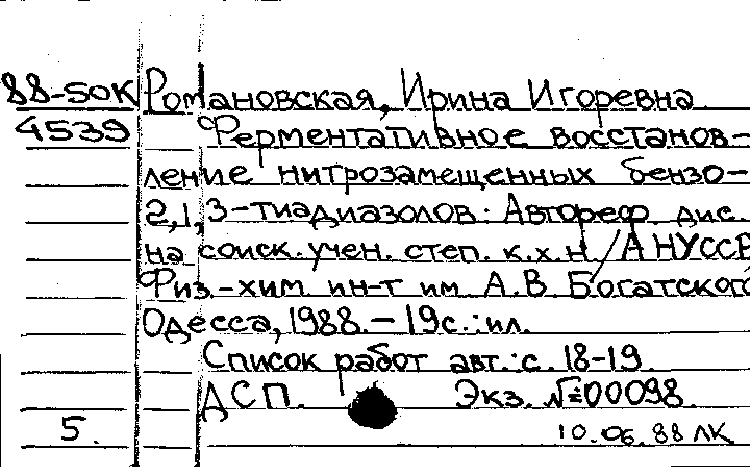 88-5ОК Романовская, Ирина Игоревна
4539 Ферментативное восстанов-
ление нитрозамещенных бензо-
2,1,3-тиадиазолов: Автореф дис.
на соиск. учен. степ. к.х.н / АН УССР
Физ.-хим. ин-т им А.В. Богатского
Одесса, 1988. - 19с.: ил.
Список работ авт.: с. 18-19.
ДСП. Экз. №00098
5. 10.06.88 ЛК